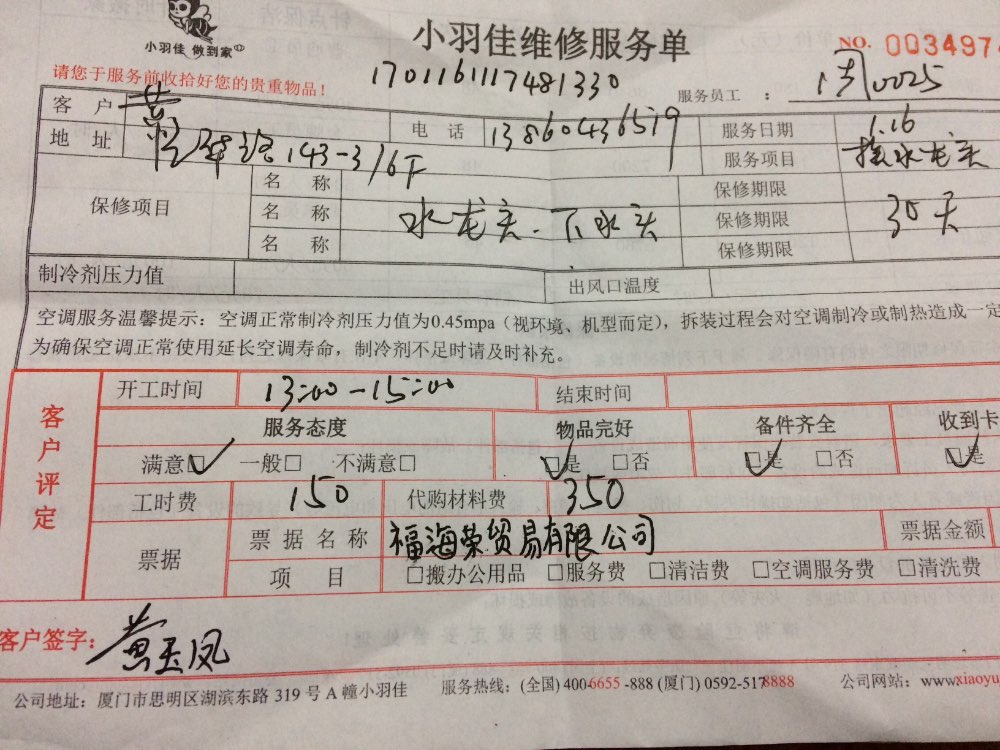 小羽佳 做到家
小羽佳维修服务单
NO. 003497
请您于服务前收拾好您的贵重物品！
1701161117481330
服务员工 ： 0025
客 户 黄
电 话 13860436519
服务日期 1.16
地 址 143-3/6F
服务项目 接水龙头
保修项目
名 称 保修期限
名 称 水龙头、下水头 保修期限 30天
名 称 保修期限
制冷剂压力值 出风口温度
空调服务温馨提示：空调正常制冷剂压力值为0.45mpa（视环境、机型而定），拆装过程会对空调制冷或制热造成一定
为确保空调正常使用延长空调寿命，制冷剂不足时请及时补充。
客户评定
开工时间 13:00-15:00 结束时间
服务态度 物品完好 备件齐全 收到卡
满意☑ 一般□ 不满意□ ☑是 □否 ☑是 □否 ☑是
工时费 150 代购材料费 350
票据
票据名称 福海荣贸易有限公司 票据金额
项 目 □搬办公用品 □服务费 □清洁费 □空调服务费 □清洗费
客户签字： 黄玉凤
公司地址：厦门市思明区湖滨东路 319 号 A 幢小羽佳 服务热线：(全国) 400-6655 -888 (厦门) 0592-5178888 公司网站：www.xiaoyu